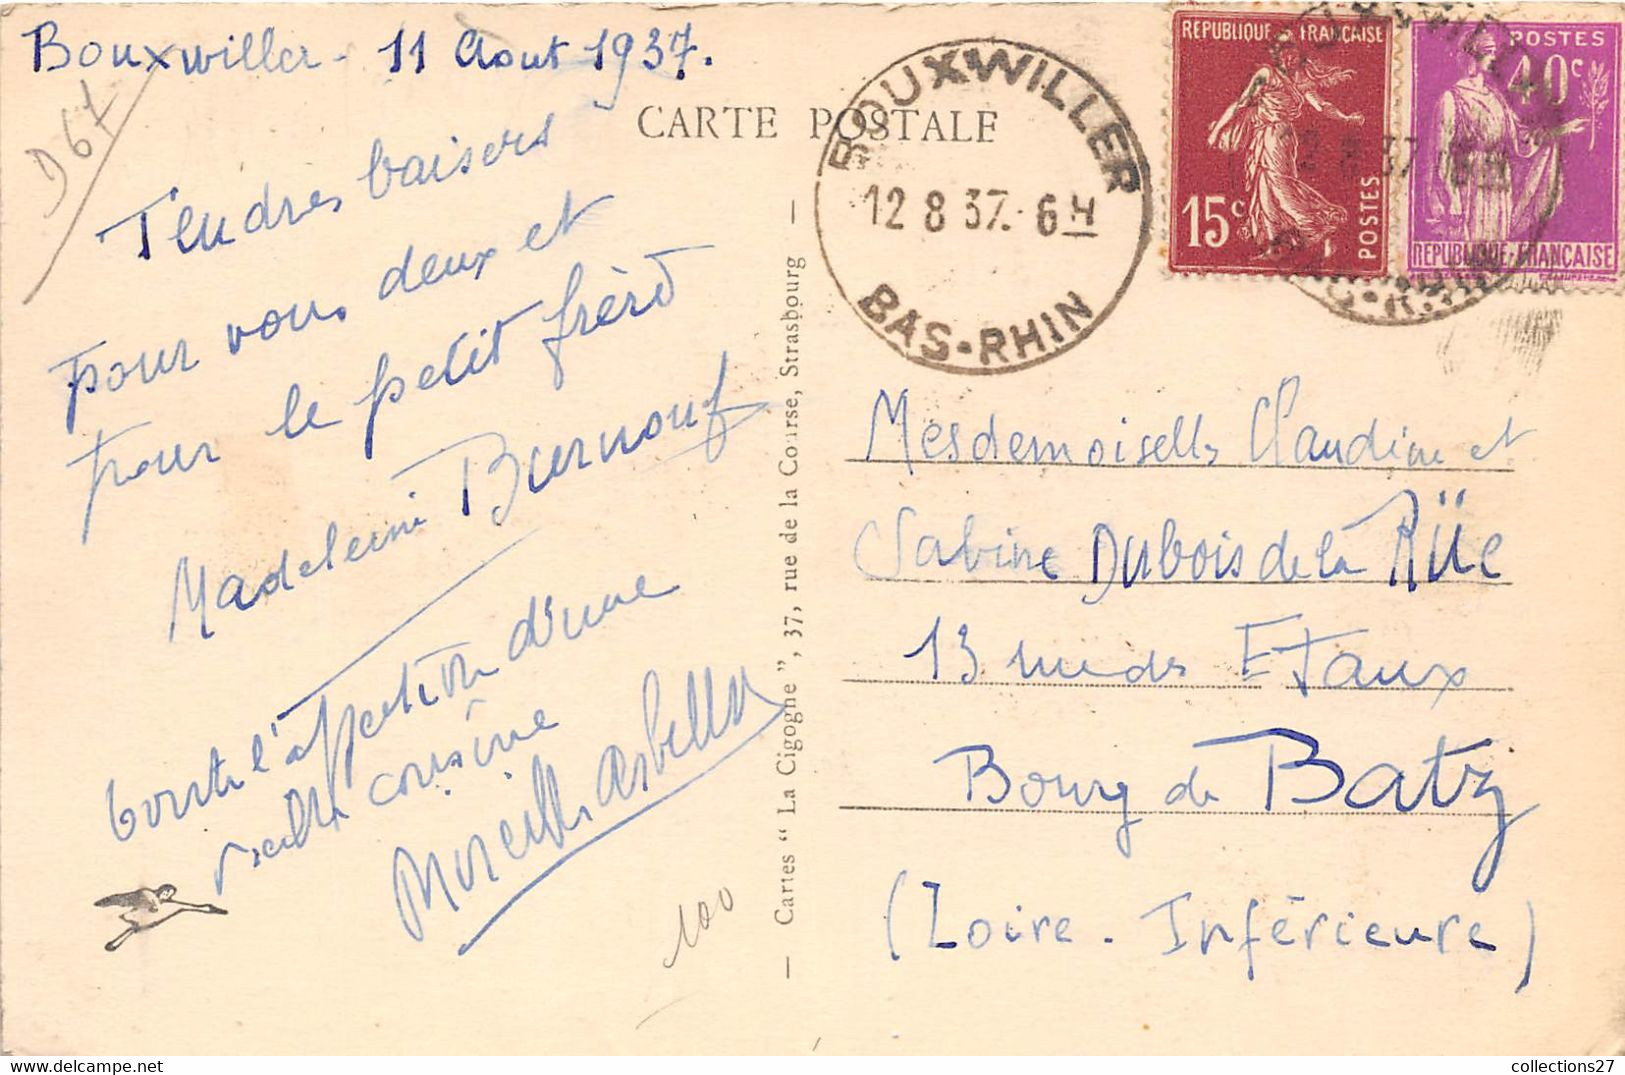 Bouxwiller - 11 Aout 1937.
D 67
CARTE POSTALE
Tendres baisers
pour vous deux et
pour le petit frère
Madeleine Burnouf
toute l'affection d'une
vieille cousine
Mireille
100
— Cartes “ La Cigogne ”, 37, rue de la Course, Strasbourg —
BOUXWILLER
12 8 37. 6 H
BAS-RHIN
RÉPUBLIQUE FRANÇAISE
15c
POSTES
POSTES
40c
RÉPUBLIQUE FRANÇAISE
BOUXWILLER
12 8 37
BAS-RHIN
Mesdemoiselles Claudine et
Sabine Dubois de la Rüe
13 rue des Etaux
Bourg de Batz
(Loire - Inférieure)
collections27